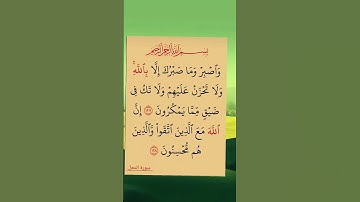 بِسْمِ ٱللَّهِ ٱلرَّحْمَٰنِ ٱلرَّحِيمِ
وَٱصْبِرْ وَمَا صَبْرُكَ إِلَّا بِٱللَّهِۚ
وَلَا تَحْزَنْ عَلَيْهِمْ وَلَا تَكُ فِى
ضَيْقٍ مِّمَّا يَمْكُرُونَ ١٢٧ إِنَّ
ٱللَّهَ مَعَ ٱلَّذِينَ ٱتَّقَوا۟ وَّٱلَّذِينَ
هُم مُّحْسِنُونَ ١٢٨
سورة النحل